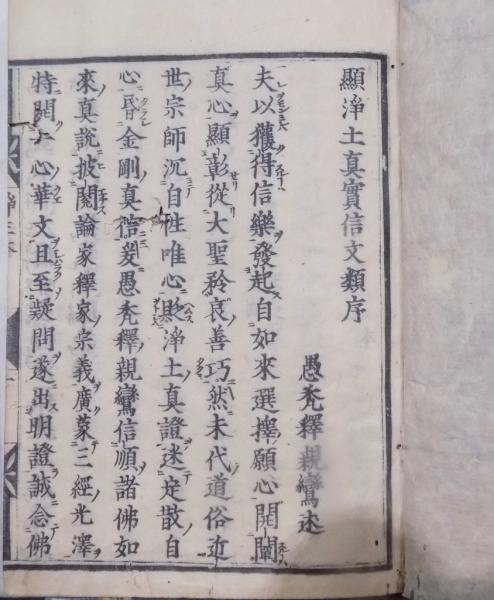 顯淨土真實信文類序
愚禿釋親鸞述
夫以獲得信樂發起自如來選擇願心開闡
真心顯彰從大聖矜哀善巧然末代道俗近
世宗師沉自性唯心貶淨土真證迷定散自
心昏金剛真信爰愚禿釋親鸞信順諸佛如
來真說披閱論家釋家宗義廣蒙三經光澤
特開一心華文且至疑問遂出明證誠念佛